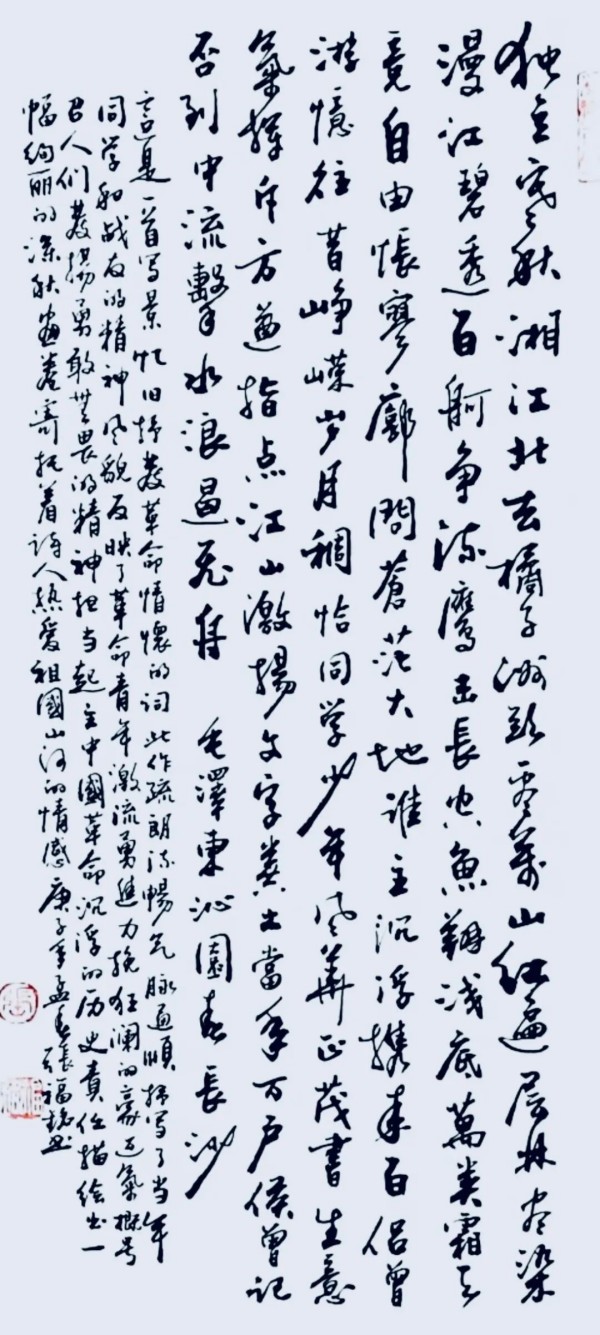 独立寒秋湘江北去橘子洲头看萬山红遍层林尽染
漫江碧透百舸争流鹰击長空魚翔浅底萬类霜天
竟自由怅寥廓問蒼茫大地谁主沉浮携来百侣曾
游憶往昔峥嵘岁月稠恰同学少年风華正茂書生意
氣挥斥方遒指点江山激揚文字粪土當年万户侯曾记
否到中流擊水浪遏飞舟 毛澤東沁園春長沙
這是一首写景忆旧抒發革命情懷的词此作疏朗流暢气脉通順描写了当年
同学和战友的精神风貌反映了革命青年激流勇進力挽狂澜的豪迈氣概号
召人们發揚勇敢無畏的精神担当起主中國革命沉浮的历史责任描绘出一
幅绚丽的深秋画卷寄托着詩人热爱祖國山河的情感庚子年孟春張福书